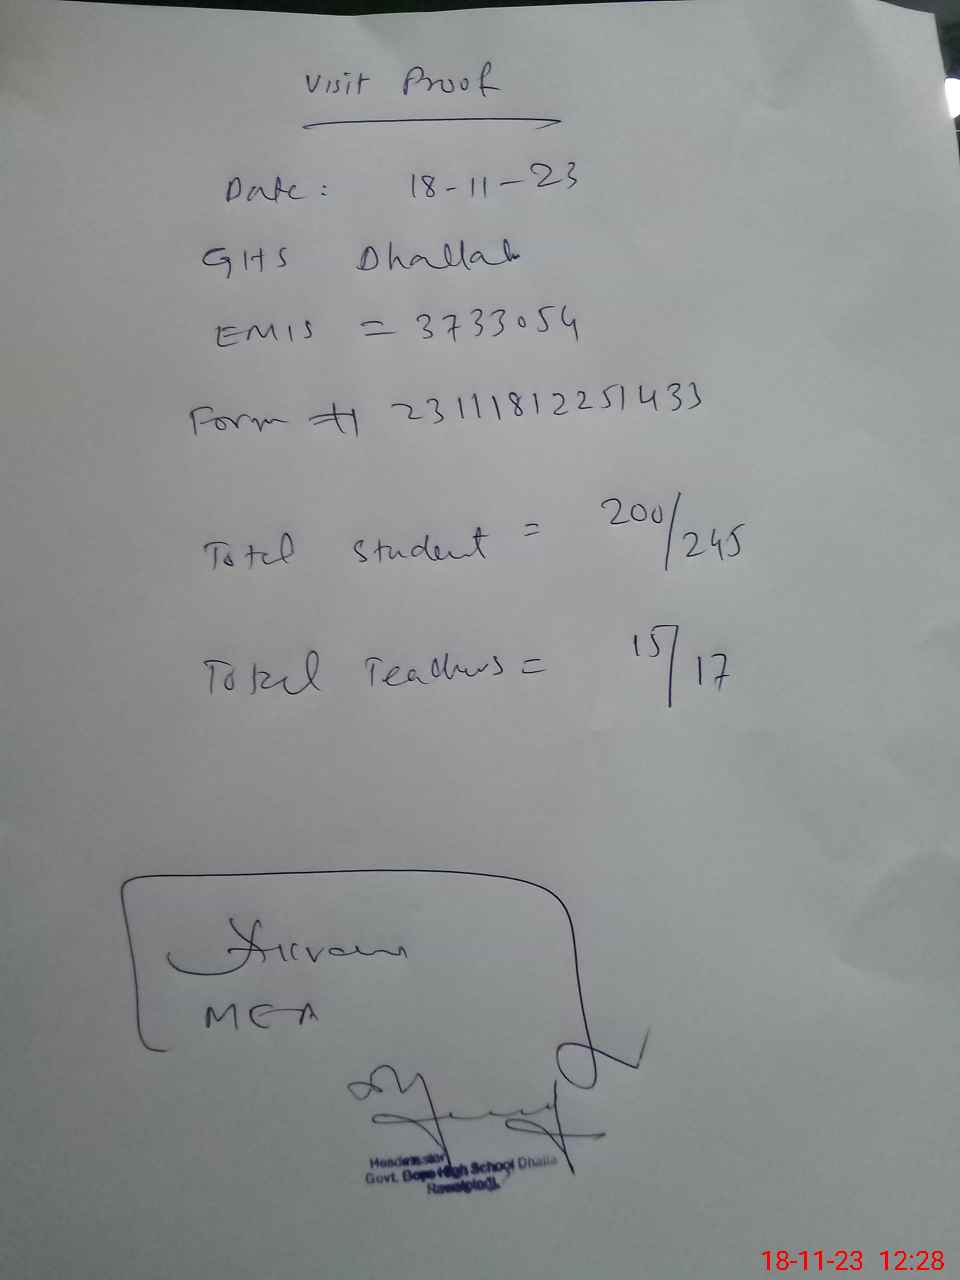 Visit Proof
Date: 18-11-23
GHS Dhallah
EMIS = 3733054
Form # 23111812251433
Total Student = 200/245
Total Teachers = 15/17
MEA
Headmaster
Govt. Boys High School Dhalla
Rawalpindi.
18-11-23 12:28